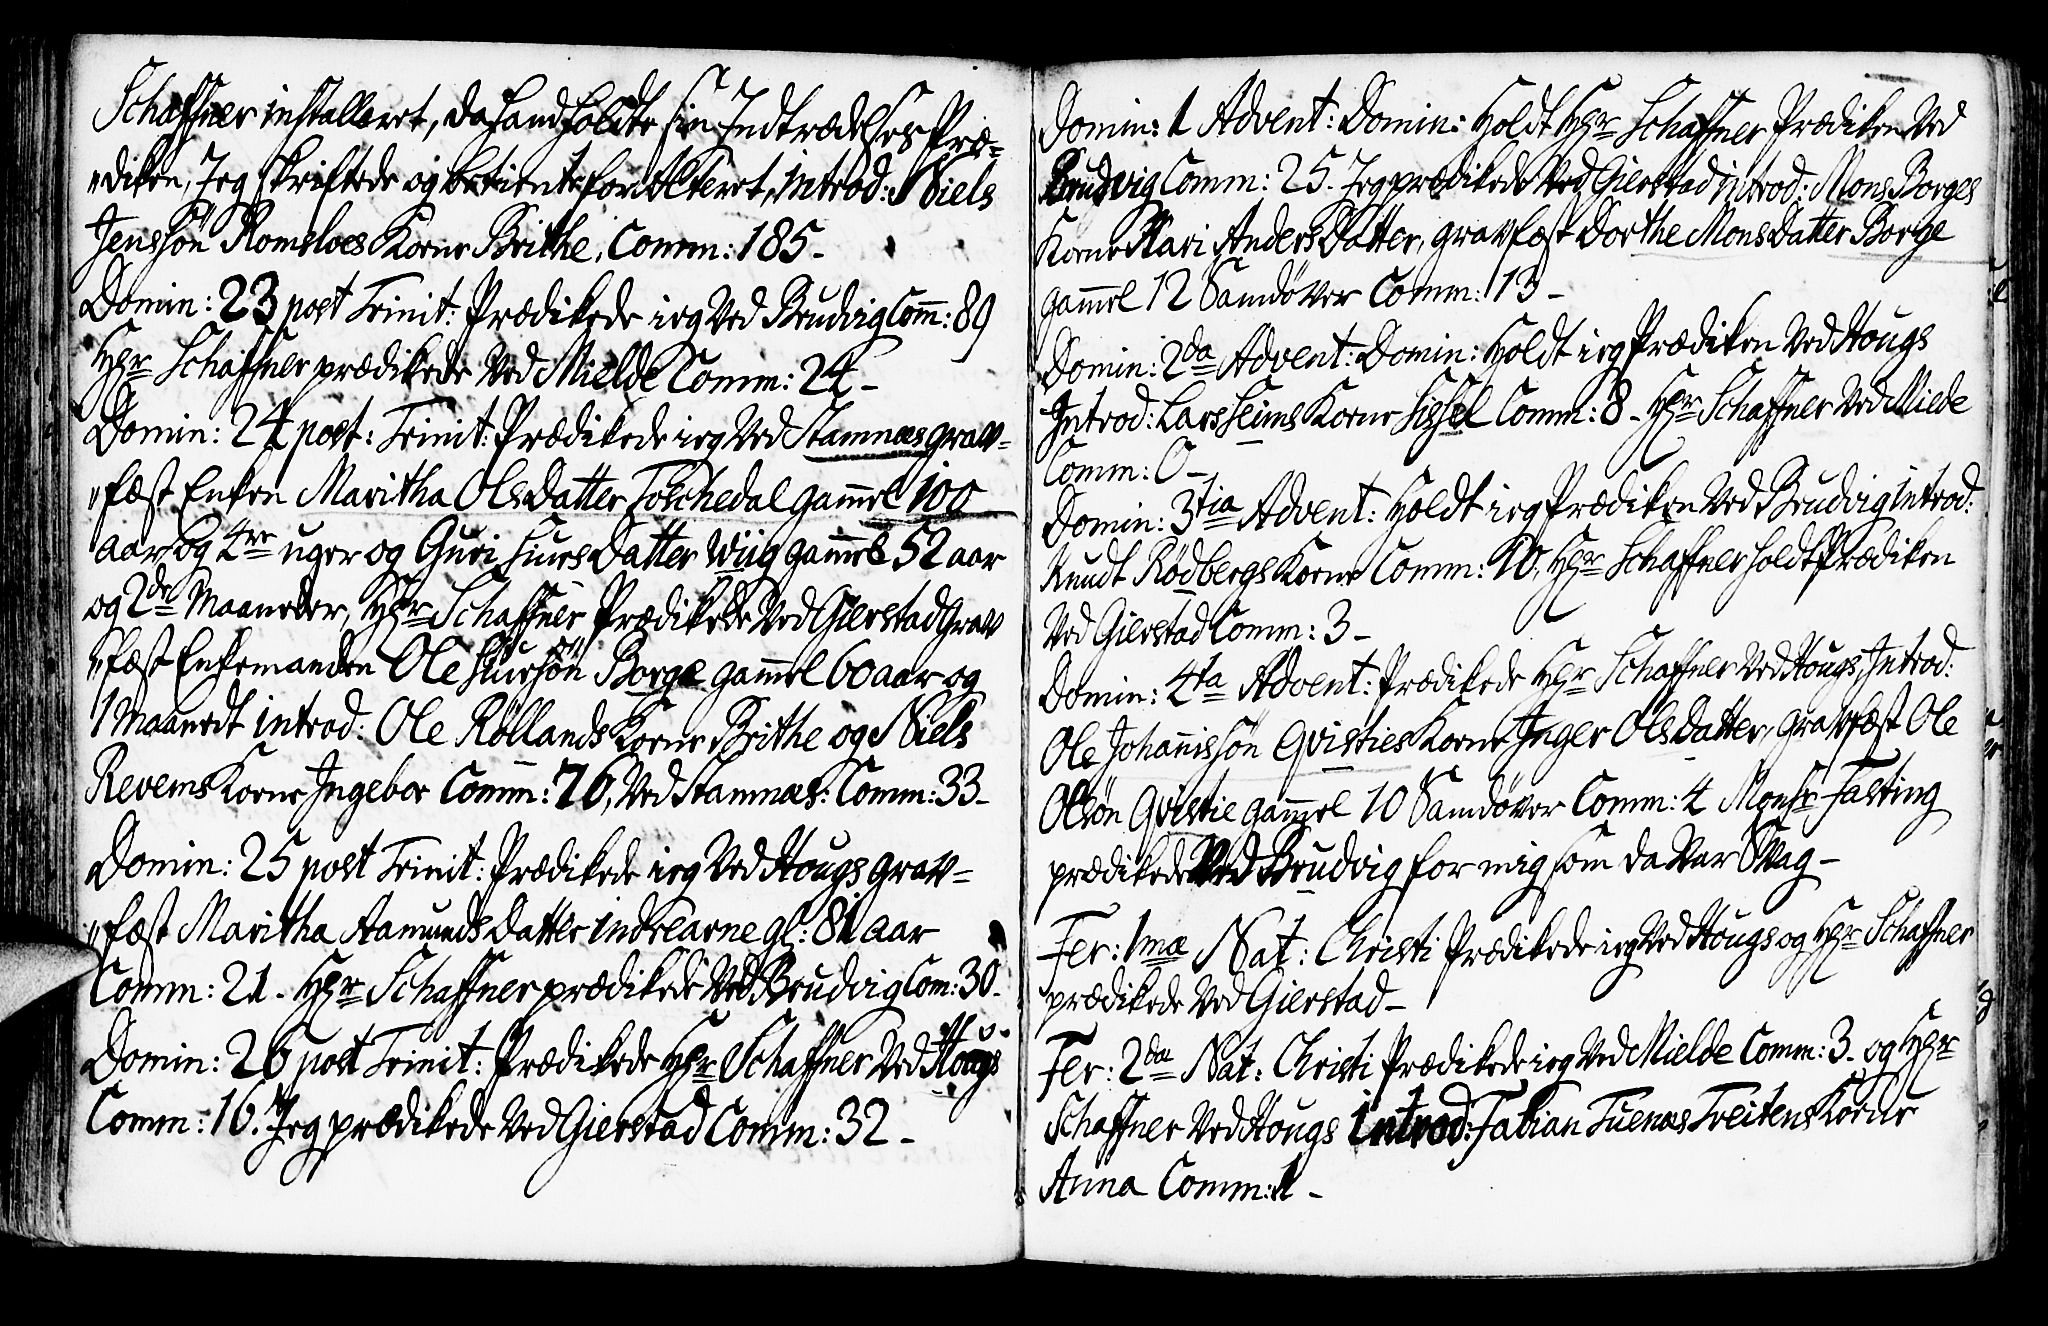 Schaffner installeret, da hand holdte sin Indtrædelses Præ=
"diken, Jeg skriftede og betiente for Alteret, introd: Niels
Jenssøn Romsloes Kone Brithe, Comm: 185-
Domin: 23 post Trinit: Prædikede ieg Ved Brudvig Com̄: 89
Hr Schaffner prædikede Ved Mielde Comm: 24-
Domin: 24 post: Trinit: Prædikede ieg Ved Stamnæs grav=
"fæst Enken Maritha OlsDatter Toschedal gam̄el 100
aar og 4re uger og Guri SiursDatter Wiig gam̄el 52 aar
og 2de Maaneder, Hr Schaffner Prædikede Ved Gierstad Grav
"fæst Enkemanden Ole Siursøn Borge gam̄el 60 aar og
1 Maanedt introd: Ole Røllands Kone Brithe og Niels
Revems Kone Ingebor Comm: 76, Ved Stamnæs: Comm: 33-
Domin: 25 post Trinit: Prædikede ieg Ved Hougs grav=
"fæst Maritha AamundsDatter indre arne gl: 81 aar
Comm: 21. Hr Schaffner prædikede Ved Brudvig Com: 30-
Domin: 26 post Trinit: Prædikede Hr Schaffner Ved Hougs
Comm: 16. Jeg prædikede Ved Gierstad Comm: 32-
Domin: 1 Advent: Domin: Holdt Hr Schaffner Prædiken Ved
Brudvig Comm: 25. Jeg prædikede Ved Gierstad introd: Mons Borges
Kone Mari AndersDatter, gravfæst Dorthe MonsDatter Borge
gam̄el 12 Samdøver Comm: 13-
Domin: 2da Advent: Domin: Holdt ieg Prædiken Ved Hougs
Introd: Lars Seims Kone Sissel Comm: 8- Hr Schaffner Ved Mielde
Comm: 0-
Domin: 3tia Advent: Holdt ieg Prædiken Ved Brudvig introd:
Knudt Rødbergs Kone Comm: 10, Hr Schaffner holdt Prædiken
Ved Gierstad Comm: 3-
Domin: 4ta Advent: Prædikede Hr Schaffner Ved Hougs, Introd:
Ole Johan̄issøn Qvisties Kone Inger OlsDatter, gravfæst Ole
Olsøn Qvistie gam̄el 10 Samdøver Comm: 4 Monsr Fasting
prædikede Ved Brudvig for mig som da Var Svag-
Fer: 1mæ Nat: Christi Prædikede ieg Ved Hougs og Hr Schaffner
prædikede Ved Gierstad-
Fer: 2dæ Nat: Christi Prædikede ieg Ved Mielde Comm: 3- og Hr
Schaffner Ved Hougs introd: Fabian Tuenæs Treitens Kone
Anna Comm: 1-